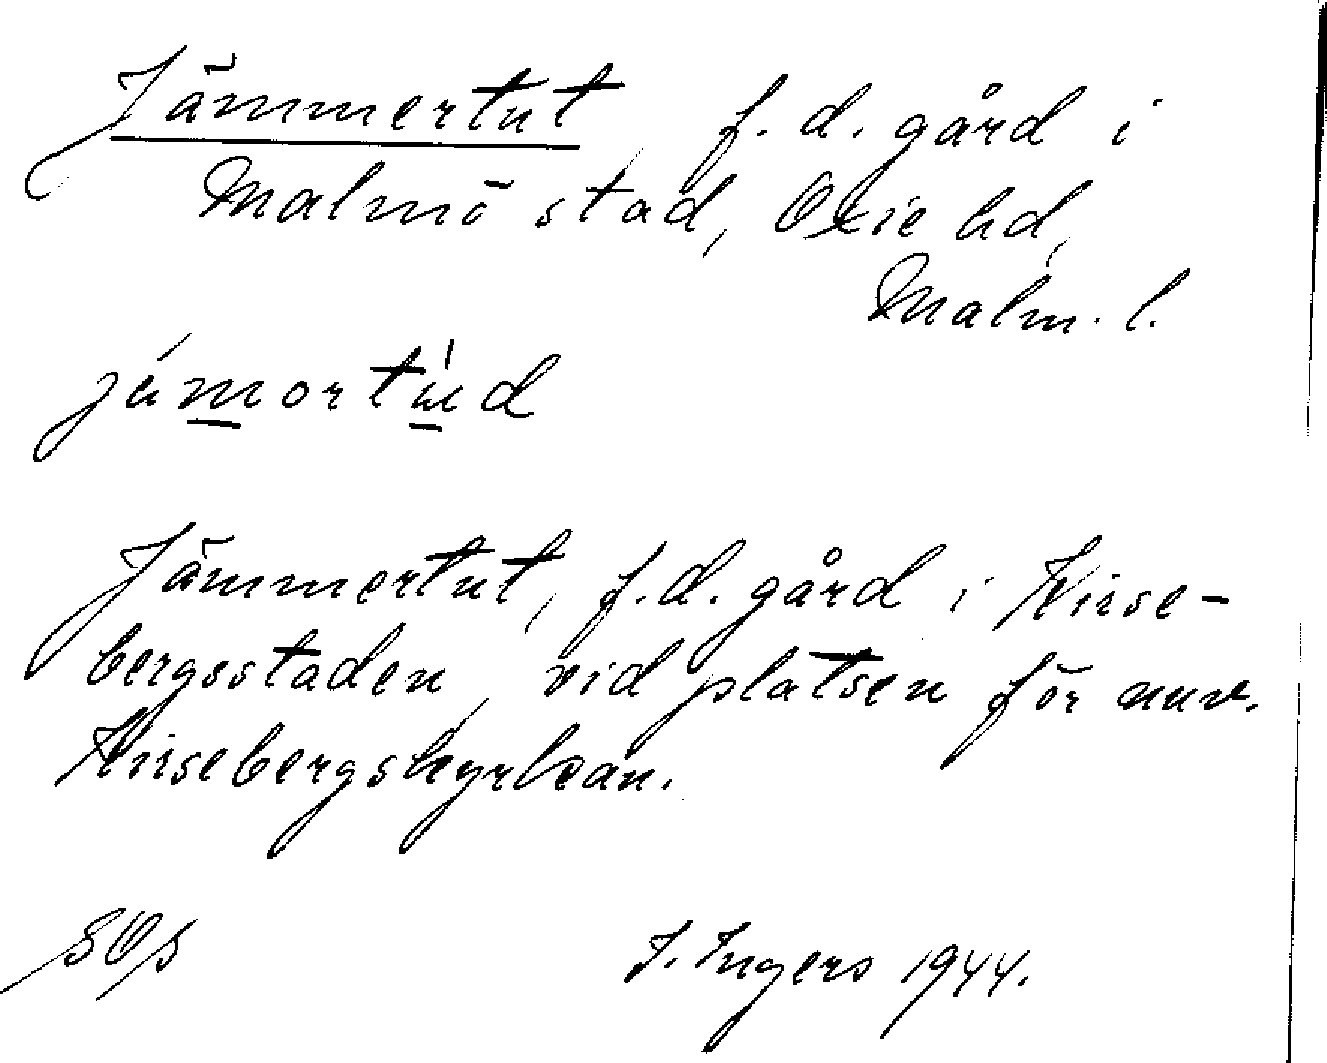 Jämmertut f. d. gård i
Malmö stad, Oxie hd,
Malm. l.
Jämmertut, f.d. gård i Kirse-
bergsstaden, vid platsen för nuv.
Kirsebergskyrkan.
I. Ingers 1944.